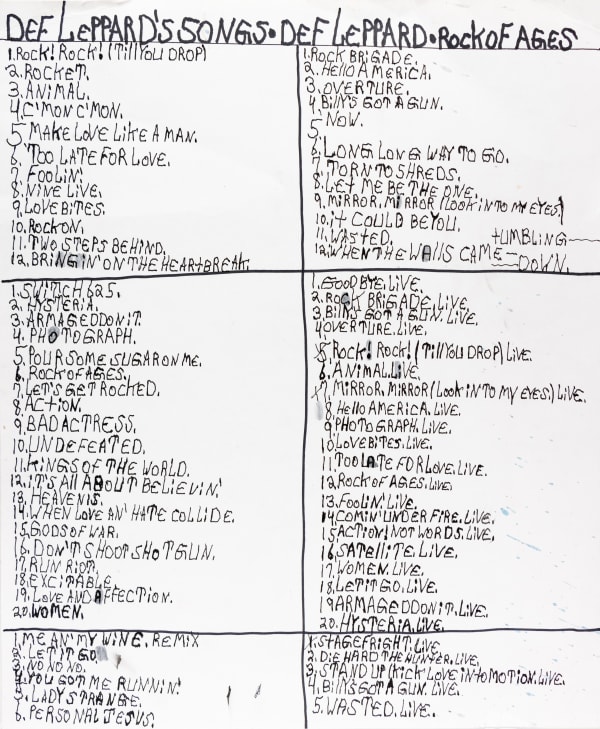 DEF LEPPARD'S SONGS • DEF LEPPARD • ROCK OF AGES
1. ROCK! ROCK! (TILL YOU DROP)
2. ROCKET.
3. ANIMAL.
4. C'MON C'MON.
5 MAKE LOVE LIKE A MAN.
6. TOO LATE FOR LOVE.
7. FOOLIN'.
8. NINE LIVE.
9. LOVE BITES.
10. ROCK ON.
11. TWO STEPS BEHIND.
12. BRINGIN' ON THE HEARTBREAK.
1. ROCK BRIGADE.
2. HELLO AMERICA.
3. OVERTURE.
4. BILLY'S GOT A GUN.
5. NOW.
6. LONG LONG WAY TO GO.
7. TORN TO SHREDS.
8. LET ME BE THE ONE.
9. MIRROR, MIRROR (LOOK INTO MY EYES)
10. IT COULD BE YOU.
11. WASTED.
12. WHEN THE WALLS CAME TUMBLING DOWN.
1. SWITCH 625.
2. HYSTERIA.
3. ARMAGEDDON IT.
4. PHOTOGRAPH.
5. POUR SOME SUGAR ON ME.
6. ROCK OF AGES.
7. LET'S GET ROCKED.
8. ACTION.
9. BAD ACTRESS.
10. UNDEFEATED.
11. KINGS OF THE WORLD.
12. IT'S ALL ABOUT BELIEVIN'.
13. HEAVEN IS.
14. WHEN LOVE AN' HATE COLLIDE.
15. GODS OF WAR.
16. DON'T SHOOT SHOTGUN.
17. RUN RIOT.
18. EXCITABLE.
19. LOVE AND AFFECTION.
20. WOMEN.
1. GOODBYE. LIVE.
2. ROCK BRIGADE. LIVE.
3. BILLY'S GOT A GUN. LIVE.
4 OVERTURE. LIVE.
5. ROCK! ROCK! (TILL YOU DROP) LIVE.
6. ANIMAL. LIVE.
7. MIRROR, MIRROR (LOOK INTO MY EYES.) LIVE.
8. HELLO AMERICA. LIVE.
9. PHOTOGRAPH. LIVE.
10. LOVE BITES. LIVE.
11. TOO LATE FOR LOVE. LIVE.
12. ROCK OF AGES. LIVE.
13. FOOLIN'. LIVE.
14 COMIN' UNDER FIRE. LIVE.
15. ACTION! NOT WORDS. LIVE.
16. SATELLITE. LIVE.
17. WOMEN. LIVE.
18. LET IT GO. LIVE.
19 ARMAGEDDON IT. LIVE.
20. HYSTERIA. LIVE.
1. ME AN' MY WINE. REMIX
2. LET IT GO.
3. NO NO NO.
4. YOU GOT ME RUNNIN'.
5. LADY STRANGE.
6. PERSONAL JESUS.
1. STAGEFRIGHT. LIVE.
2. DIE HARD THE HUNTER. LIVE.
3. STAND UP (KICK LOVE INTO MOTION. LIVE.
4. BILLY'S GOT A GUN. LIVE.
5. WASTED. LIVE.